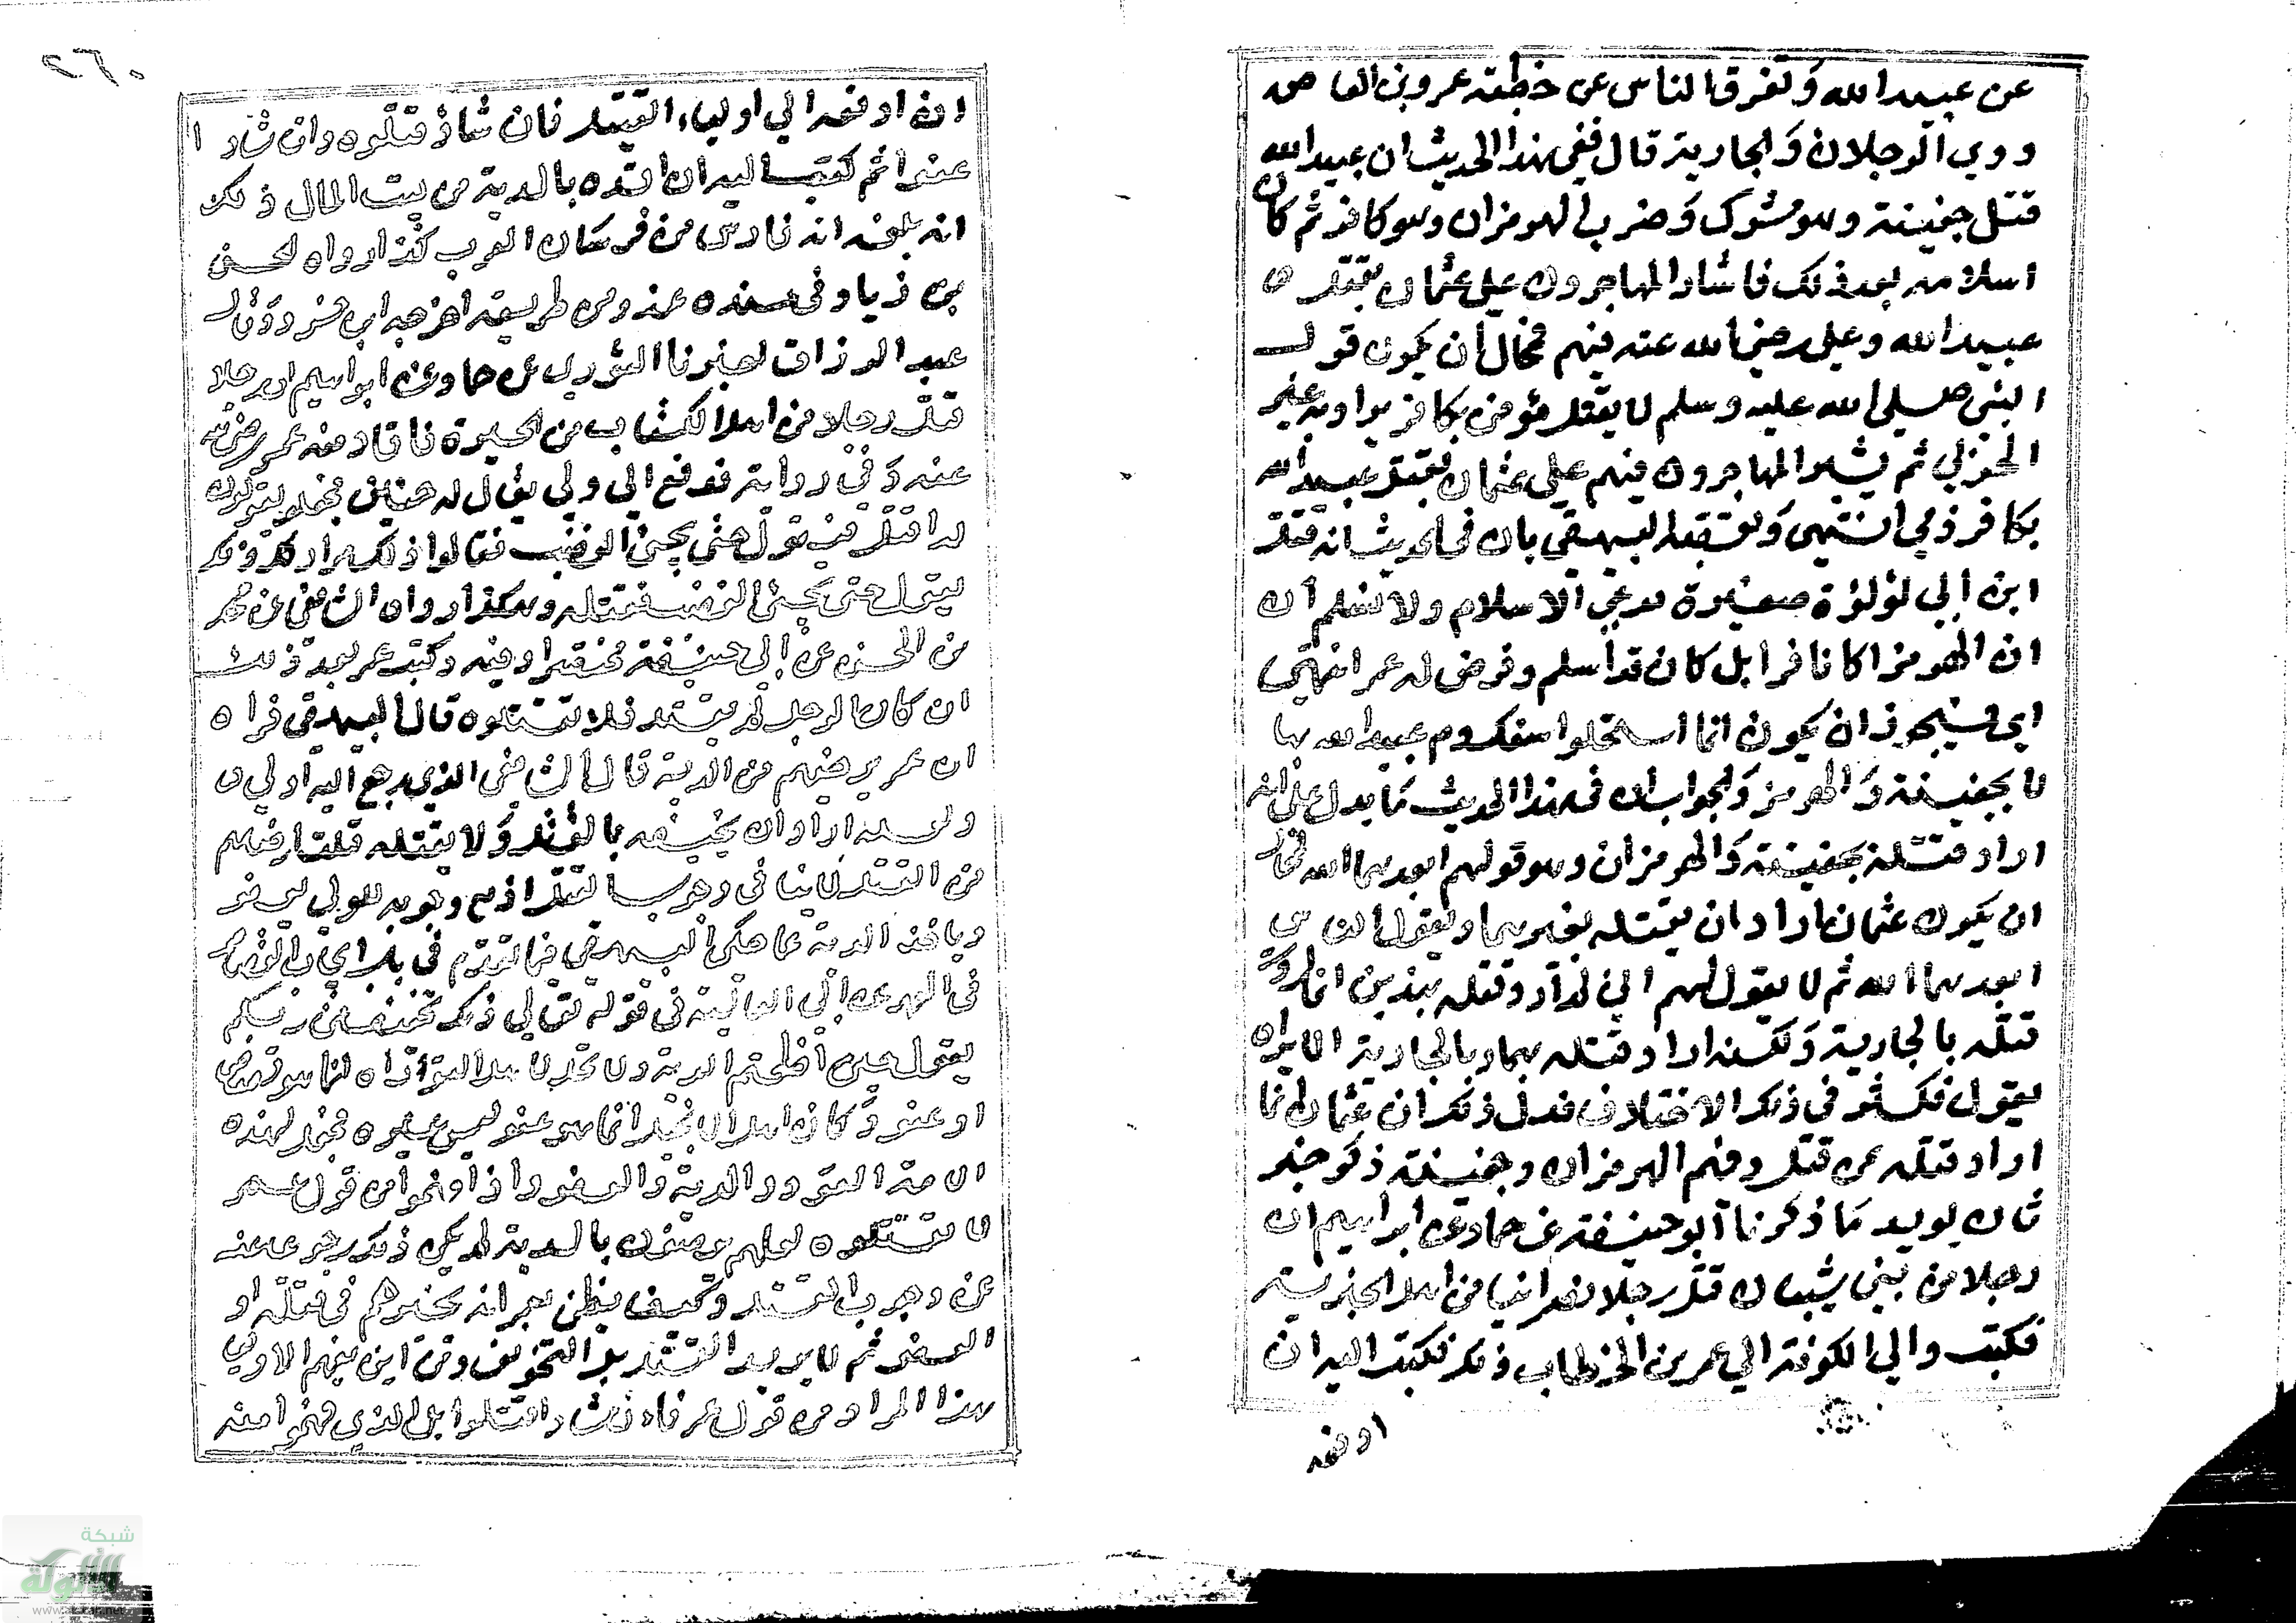 عن عبيد الله وتفرق الناس عن خطبته عمرو بن العاص
وودي الرجلان والجارية قال ففي هذا الحديث ان عبيد الله
قتل جفينة وهو مشرك وضرب الهرمزان وهو كافر ثم كان
اسلامه بعد ذلك فاشار المهاجرون على عثمان بقتل
عبيد الله وعلي رضي الله عنه فيهم فمحال ان يكون قول
النبي صلى الله عليه وسلم لا يقتل مؤمن بكافر يراد به غير
الحربي ثم يشير المهاجرون فيهم علي على عثمان بقتل عبيد الله
بكافر ذمي انتهى وتعقبه البيهقي بان في الحديث انه قتل
ابن ابي لؤلؤة صغيرة تدعي الاسلام ولا نسلم ان
ان الهرمزا كان كافرا بل كان قد اسلم وفرض له عمر انتهى
اي فيجوز ان يكون انما استحلوا سفك دم عبيد الله بها
لا بجفينة والهرمز والجواب ان في هذا الحديث ما يدل على انه
اراد قتله بجفينة والهرمزان وهو قولهم ابعدهما الله فمحال
ان يكون عثمان اراد ان يقتله بغيرهما ويقول الناس
ابعدهما الله ثم لا يقول لهم اني لم ارد قتله بهذين انما اردت
قتله بالجارية ولكنه اراد قتله بهما وبالجارية الا تراه
يقول فكثر في ذلك الاختلاف فدل ذلك ان عثمان انما
اراد قتله عن قتل وفيهم الهرمزان وجفينة ذكر خبر
ثان يويد ما ذكرنا ابو حنيفة عن حماد عن ابراهيم ان
رجلا من بني شيبان قتل رجلا نصرانيا من اهل الجزية
فكتب والي الكوفة الى عمر بن الخطاب ذلك فكتب اليه ان
ادفعه
٢٦٠
ان ادفعه الى اولياء القتيل فان شاؤ قتلوه وان شاؤ ا
عفوا ثم كتب اليه ان افده بالدية من بيت المال ذلك
انه بلغه انه فارس من فرسان العرب كذا رواه الحسن
بن زياد في مسنده عنه ومن طريقه اخرجه ابن خسرو وقال
عبد الرزاق اخبرنا الثوري عن حماد عن ابراهيم ان رجلا
قتل رجلا من اهل الكتاب من الحيرة فاقاد منه عمر رضي الله
عنه وفي رواية فدفع الى ولي يقال له حنين فجعلوا يقولون
له اقتل فيقول حتى يجئ الغضب فقالوا ذلك مرارا كل ذلك
يقول حتى يجئ الغضب فقتله وهكذا رواه الشافعي عن محمد
بن الحسن عن ابي حنيفة مختصرا وفيه وكتب عمر بعد ذلك
ان كان الرجل لم يقتل فلا تقتلوه قال البيهقي فراوا
ان عمر يرضيهم من الدية قال الشافعي الذي رجع اليه اولى
ولعله اراد ان يخيفه بالقتل ولا يقتله قلت
من القتل لا ينافي وجوب القتل اذ مع وجوبه للولي ان يعفو
وياخذ الدية بما حكى البيهقي فيما تقدم في باب ايجاب القصاص
في العمد عن ابي العالية في قوله تعالى ذلك تخفيف من ربكم
يقول حين اطعتم الدية ولم تحل لاهل التوراة انما هو قصاص
او عفو وكان اهل الانجيل انما هو عفو ليس غيره فجعل لهذه
الامة القود والدية والعفو واذا فهموا من قول عمر
لا تقتلوه لعلهم يرضون بالدية لم يكن ذلك رجوعا منه
عن وجوب القتل وكيف يظن بعمر انه يخيرهم في قتله او
العفو ثم لا يريد القتل بل التخويف ومن اين يفهم الاولى
هذا المراد من قول عمر فان شاؤا قتلوا بل الذي فهموا منه
شبكة
الألوكة